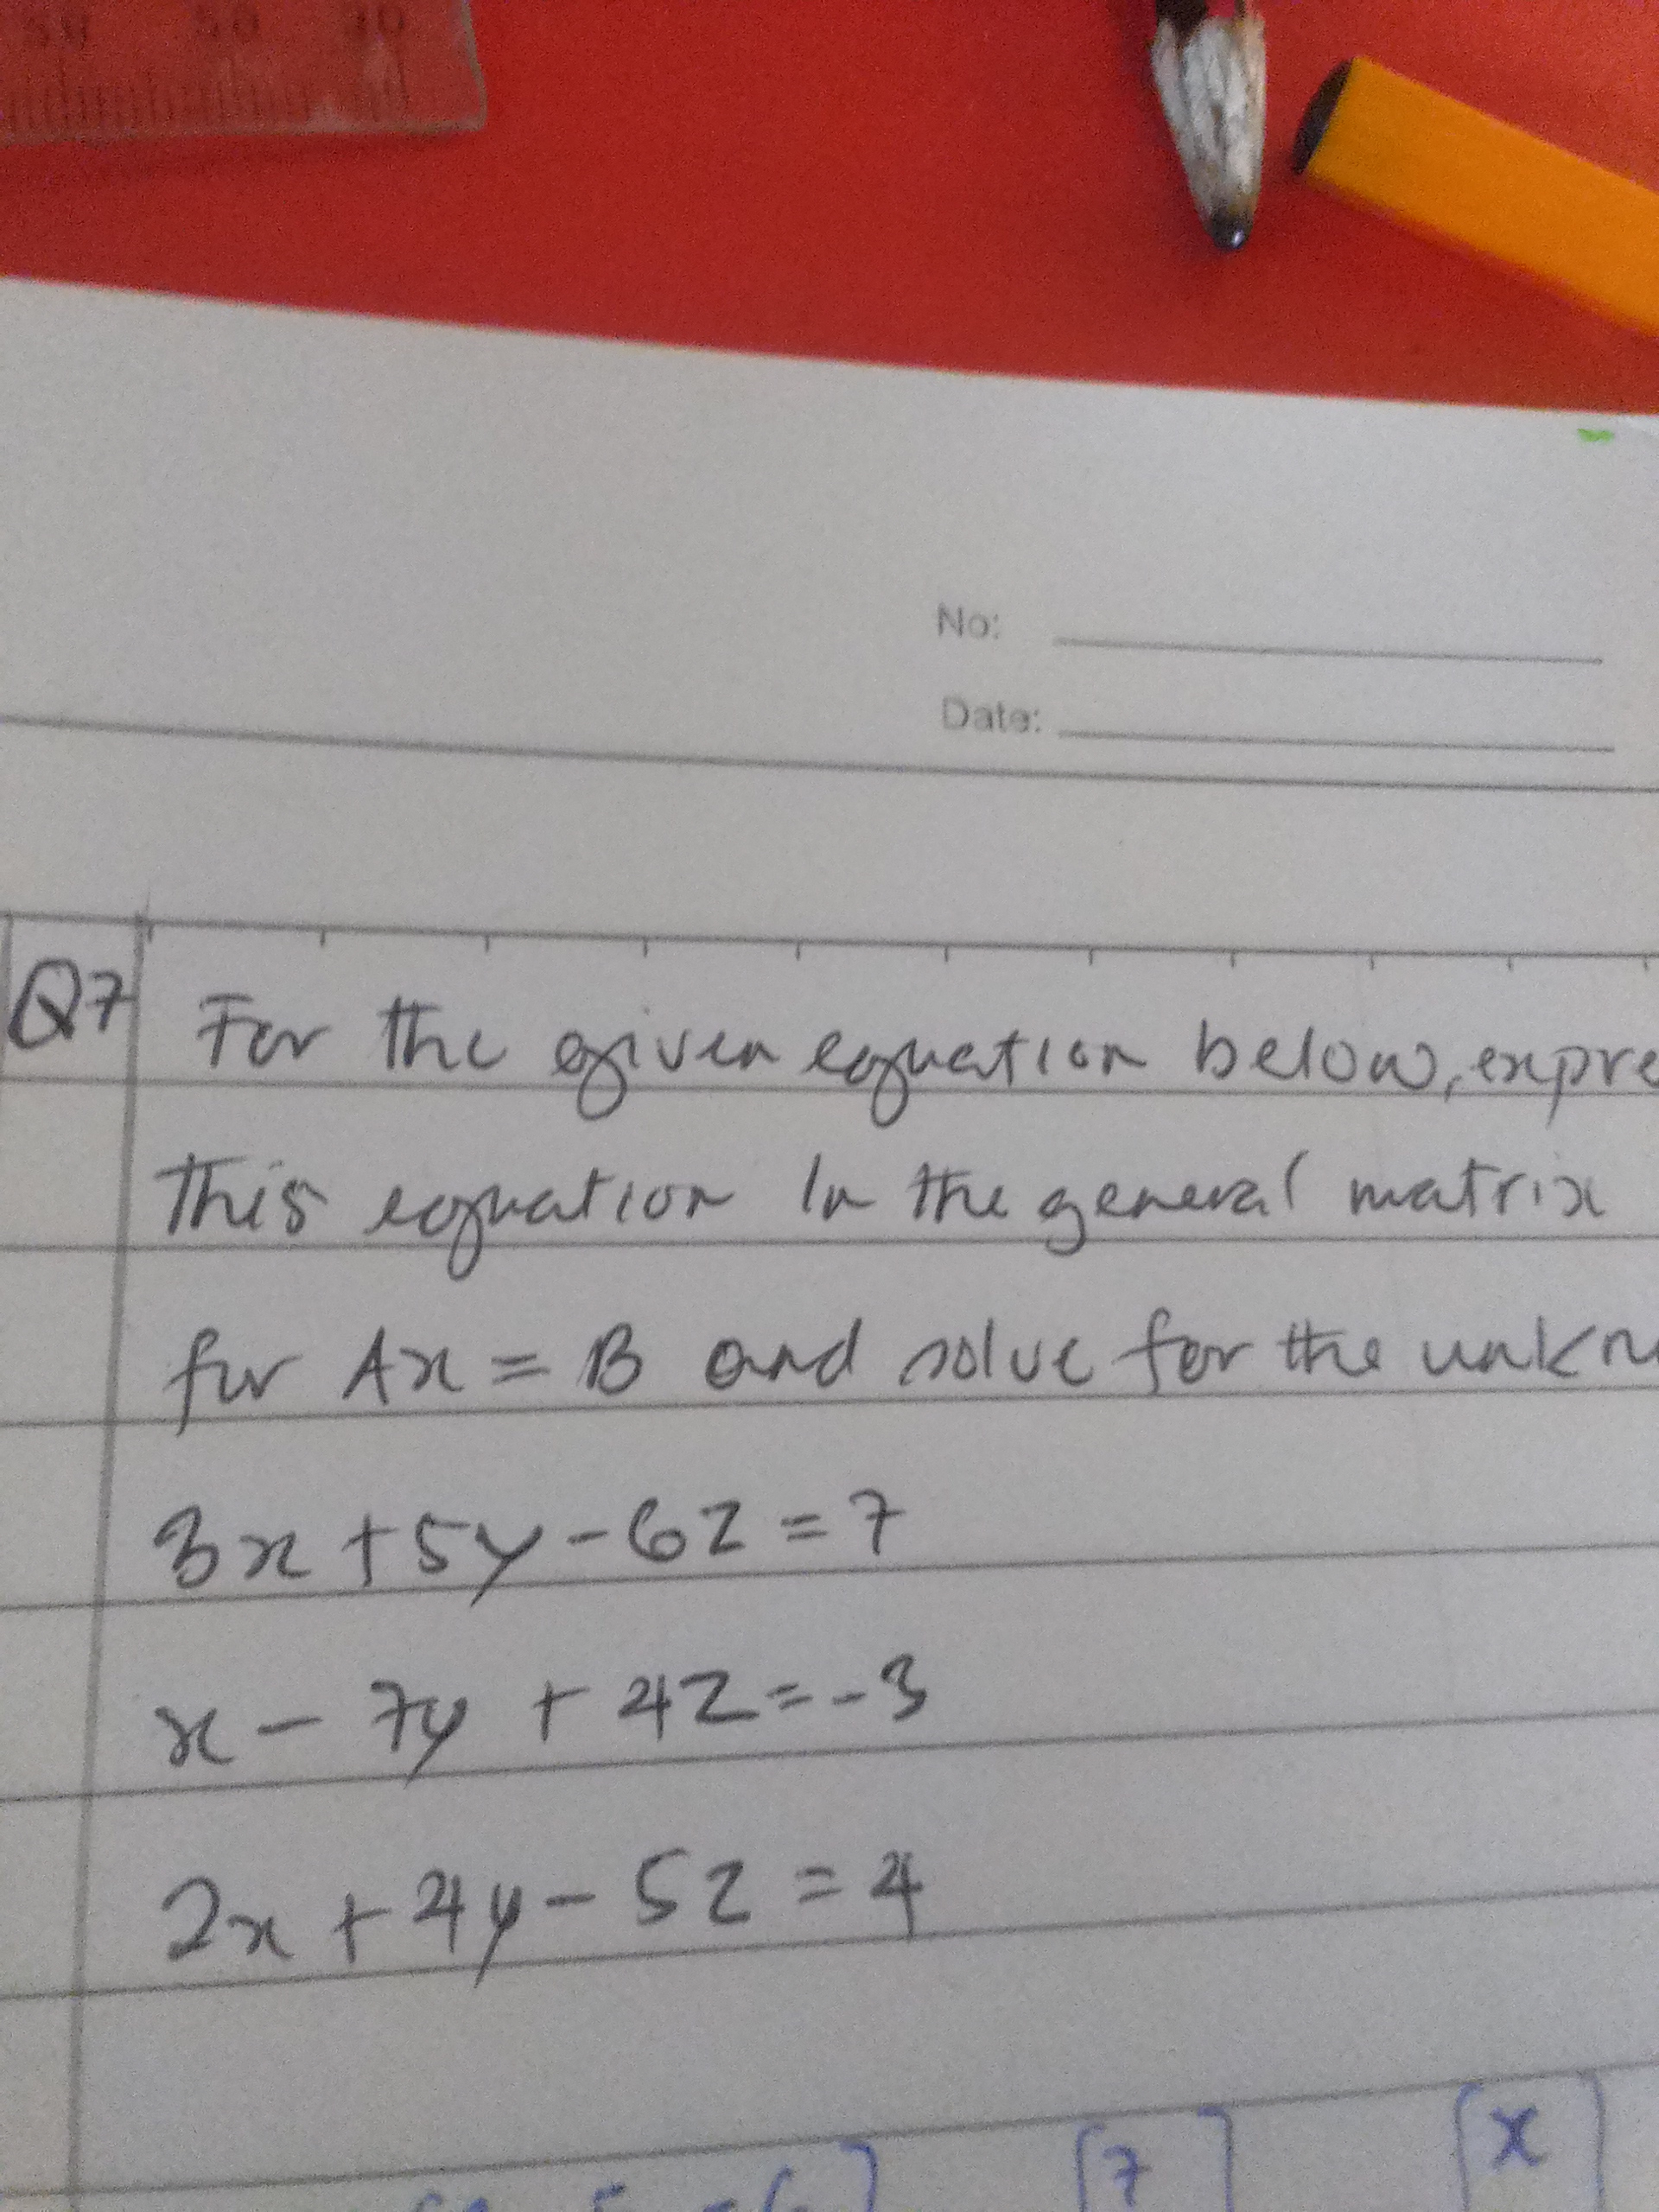 No:
Date:
Q7 For the given equation below, expre
this equation in the general matrix
for Ax = B and solve for the unkn
3x + 5y - 6z = 7
x - 7y + 4z = -3
2x + 4y - 5z = 4
[7] [x]